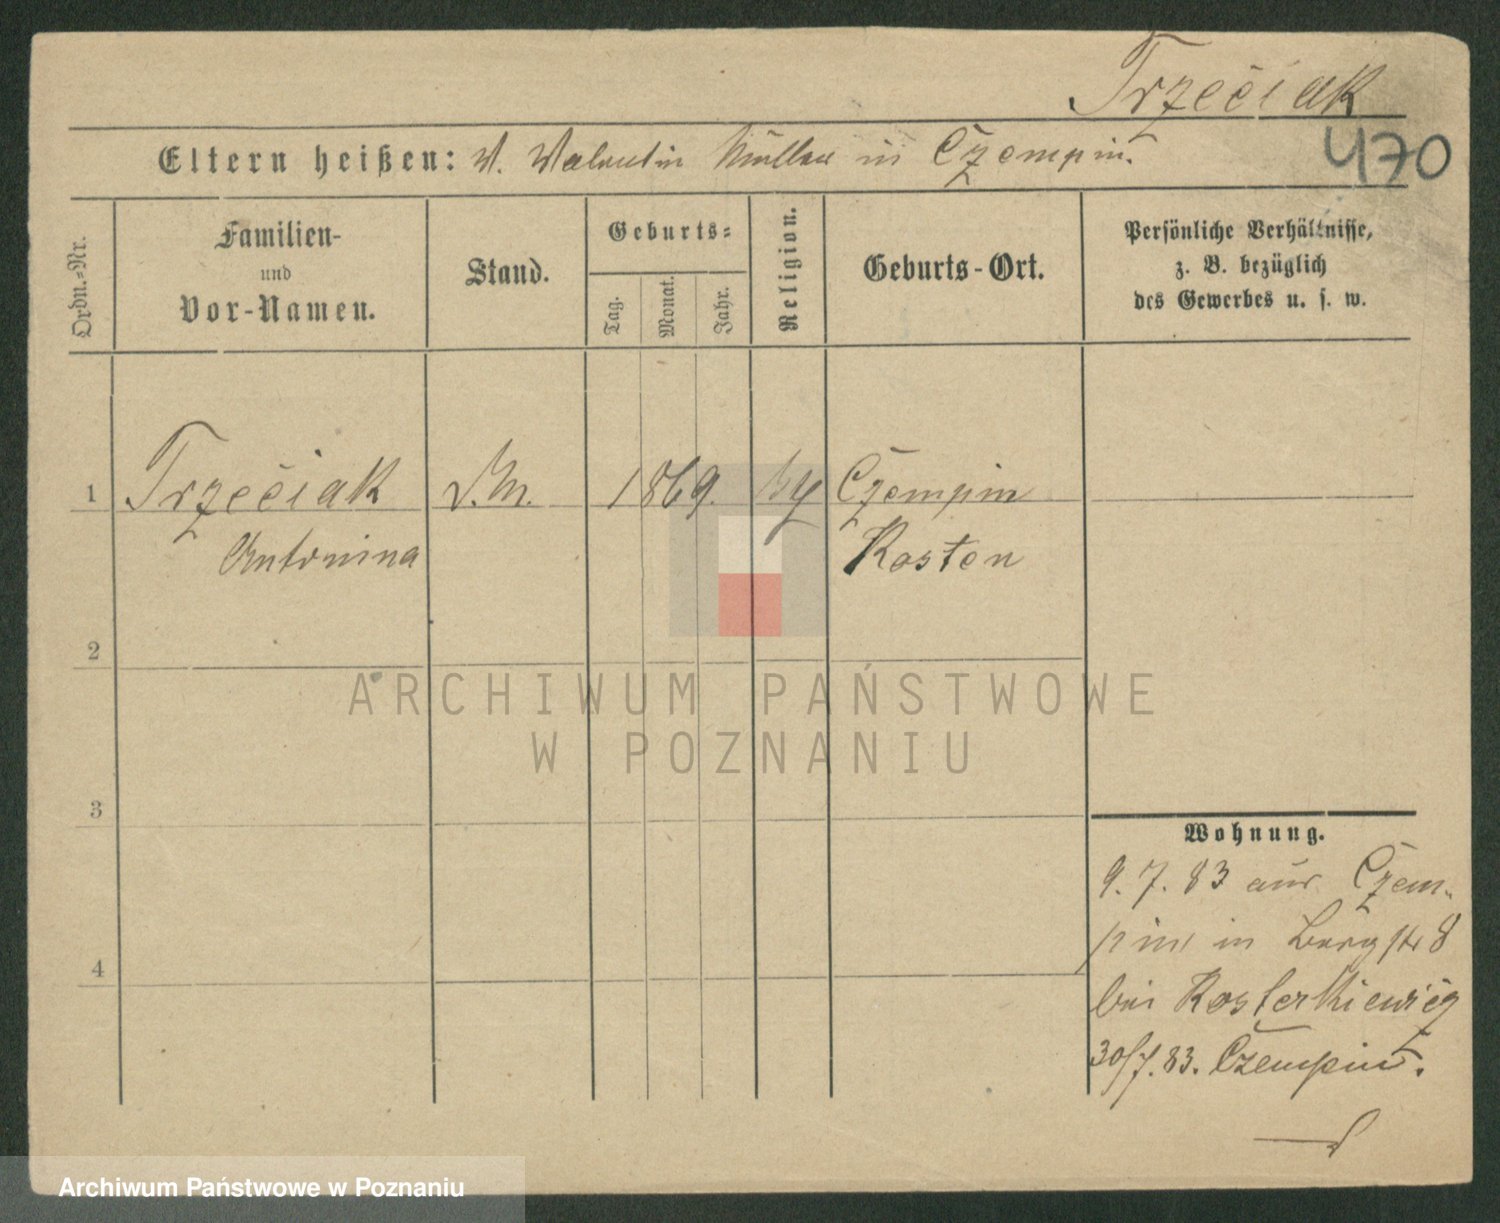 Trzeciak
470
Eltern heißen: V. Valentin Müller in Czempin.
Ordn.-Nr.
Familien-
und
Vor-Namen.
Stand.
Geburts-
Tag.
Monat.
Jahr.
Religion.
Geburts-Ort.
Persönliche Verhältnisse,
z. B. bezüglich
des Gewerbes u. s. w.
1 Trzeciak 1869. Czempin
Antonina Kosten
2
3
4
ARCHIWUM PAŃSTWOWE
W POZNANIU
Wohnung.
9. 7. 83 aus Czem-
pin in Bergstr 8
bei Kosterkiewicz
30/7. 83. Czempin.
Archiwum Państwowe w Poznaniu